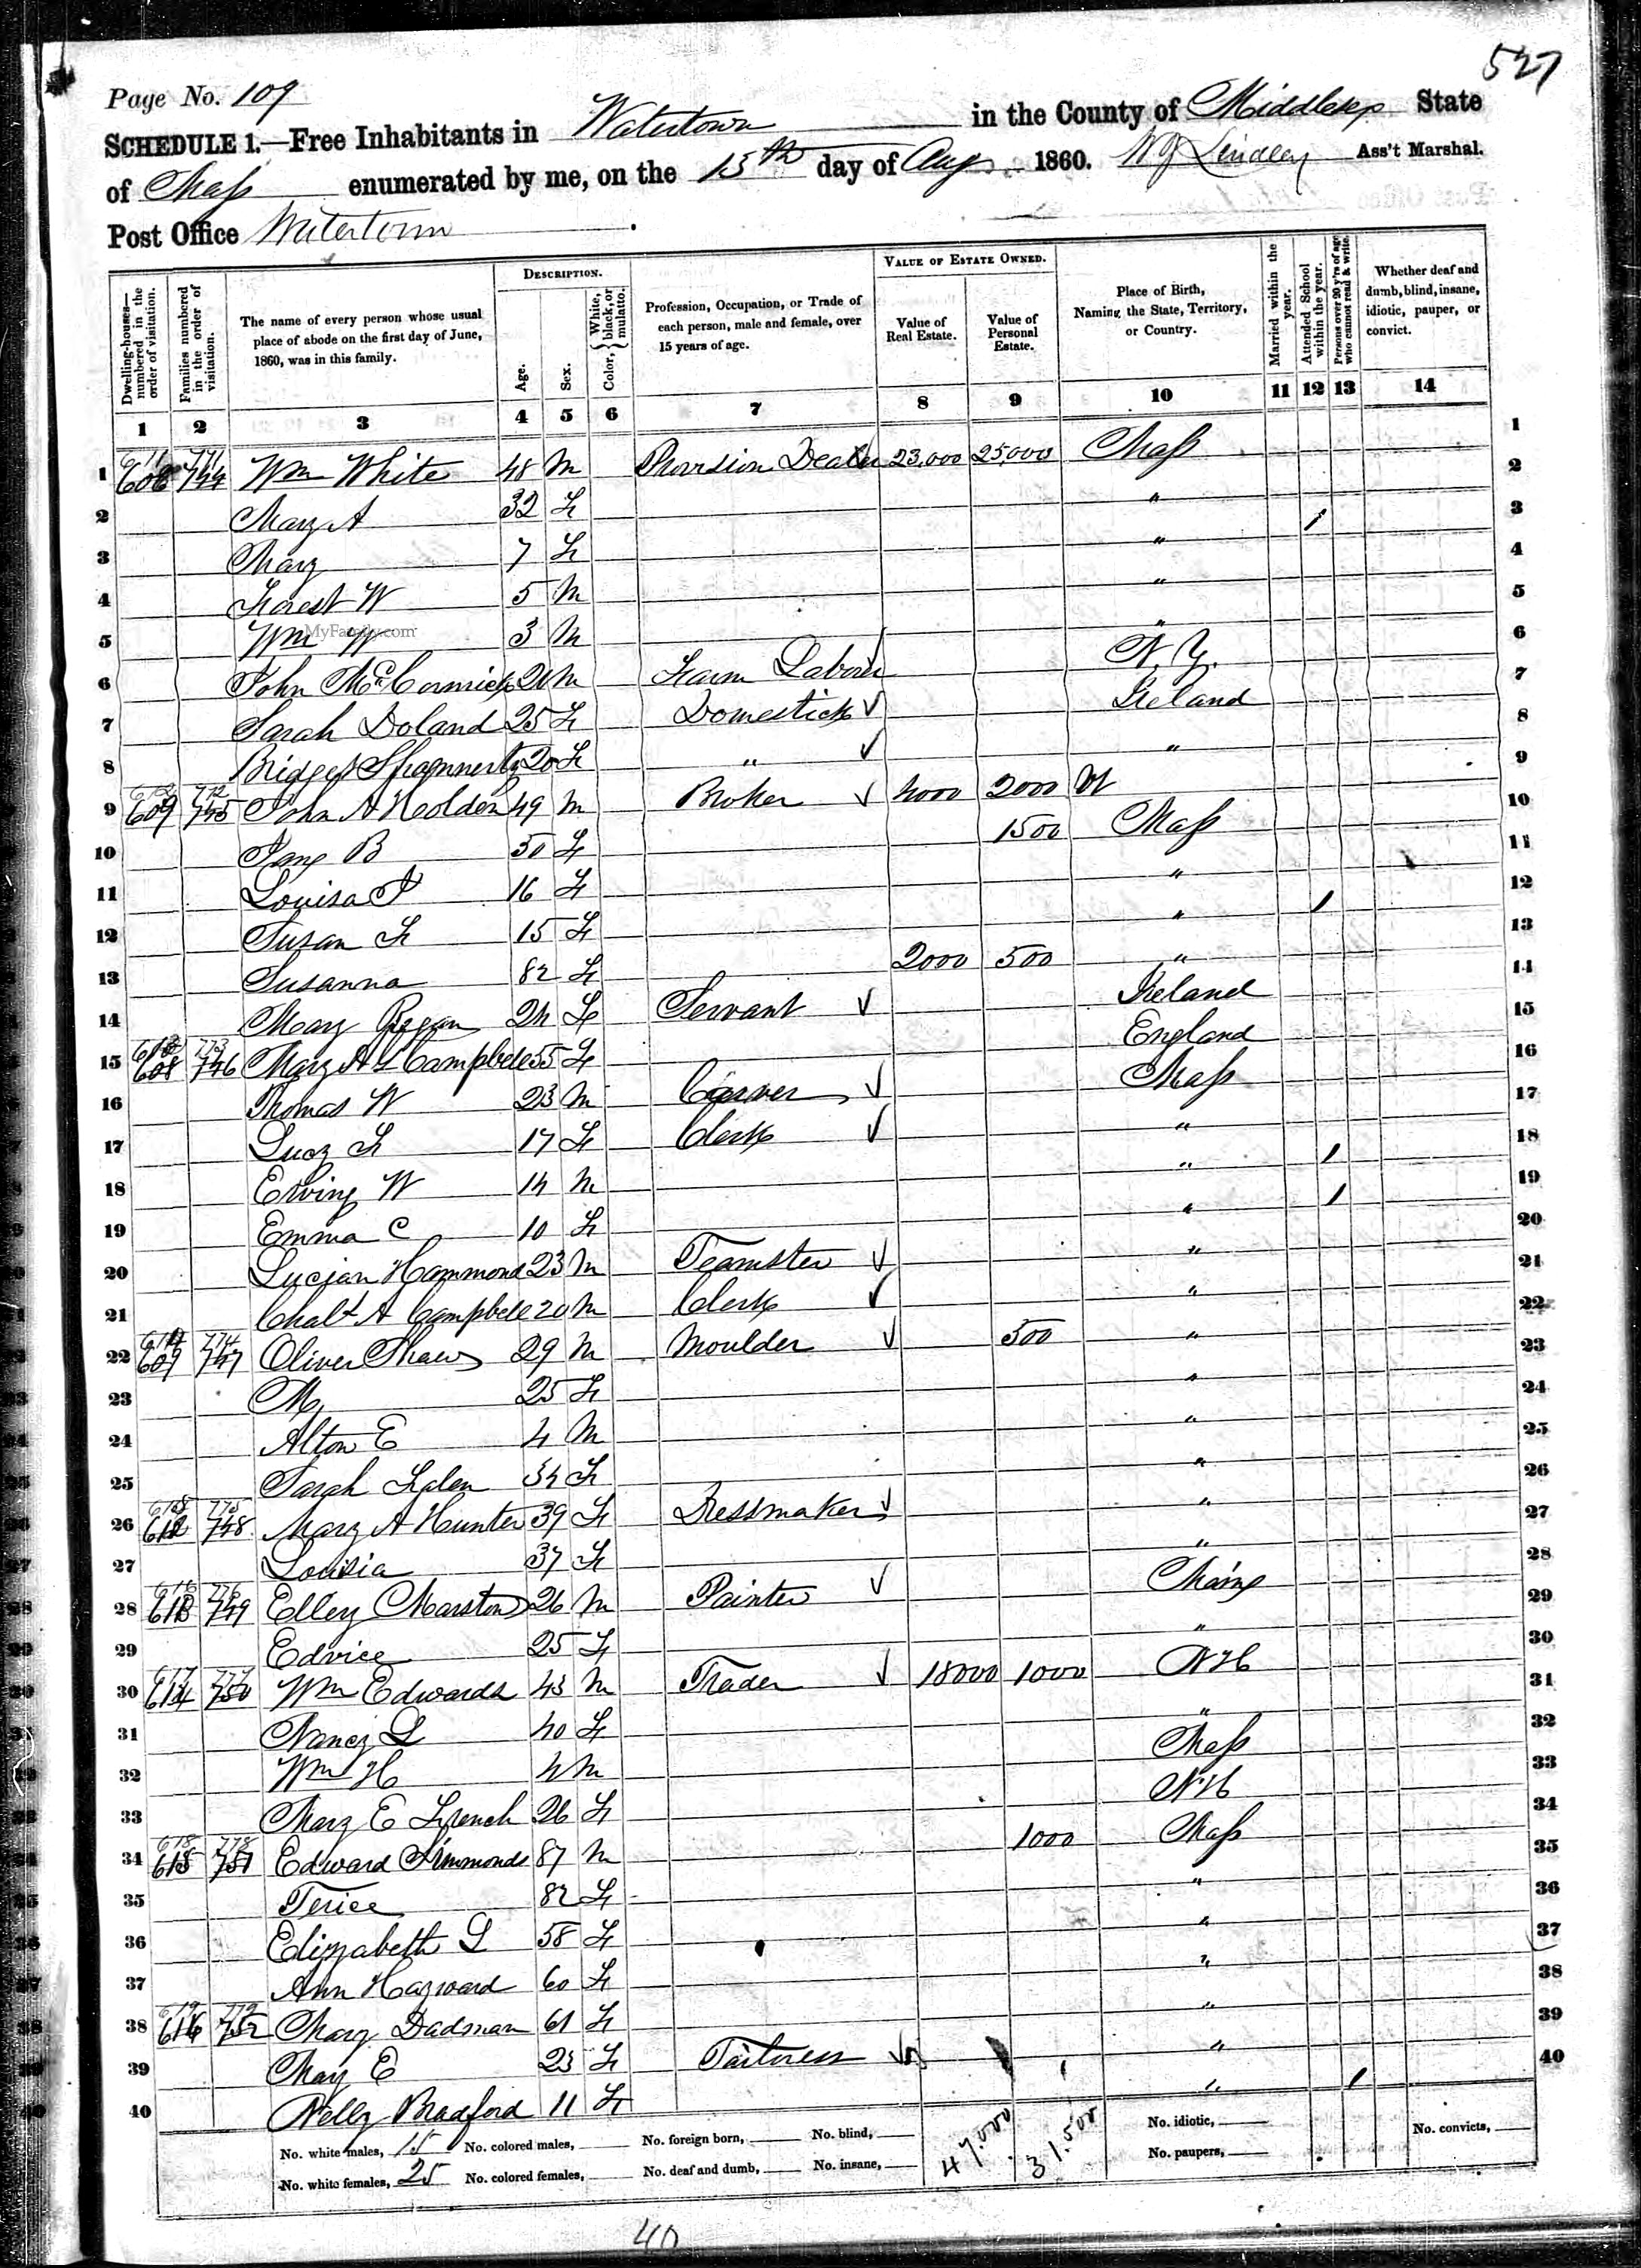 527
Page No. 109
SCHEDULE 1.—Free Inhabitants in Watertown in the County of Middlesex State
of Mass enumerated by me, on the 15th day of Aug 1860. W J Lindley Ass't Marshal.
Post Office Watertown
Dwelling-houses—numbered in the order of visitation.
Families numbered in the order of visitation.
The name of every person whose usual place of abode on the first day of June, 1860, was in this family.
DESCRIPTION.
Age.
Sex.
Color, { White, black, or mulatto.
Profession, Occupation, or Trade of each person, male and female, over 15 years of age.
VALUE OF ESTATE OWNED.
Value of Real Estate.
Value of Personal Estate.
Place of Birth, Naming the State, Territory, or Country.
Married within the year.
Attended School within the year.
Persons over 20 y'rs of age who cannot read & write.
Whether deaf and dumb, blind, insane, idiotic, pauper, or convict.
1 2 3 4 5 6 7 8 9 10 11 12 13 14
1 744 Wm White 48 M Provision Dealer 23,000 25,000 Mass 1
2 Mary A 32 F " 2
3 Mary 7 F " / 3
4 Forest W 5 M " 4
5 Wm W 3 M " 5
MyFamily.com
6 John McCormick 21 M Farm Laborer N.Y. 6
7 Sarah Doland 25 F Domestick ✓ Ireland 7
8 Bridget 20 F " ✓ " 8
9 609 745 John A Holden 49 M Broker ✓ 4000 2000 Vt 9
10 Jane B 50 F 1500 Mass 10
11 Louisa 16 F " 11
12 Susan F 15 F " / 12
13 Susanna 82 F 2000 500 " 13
14 Mary Regan 24 F Servant ✓ Ireland 14
15 608 746 Mary A L Campbell 55 F England 15
16 Thomas W 23 M Carver ✓ Mass 16
17 Lucy F 17 F Clerk ✓ " 17
18 Erving W 14 M " / 18
19 Emma C 10 F " / 19
20 Lucian Hammond 23 M Teamster ✓ " 20
21 Chas A Campbell 20 M Clerk ✓ " 21
22 609 774 747 Oliver Shaw 29 M Moulder ✓ 500 " 22
23 M 25 F " 23
24 Alton E 4 M " 24
25 Sarah 34 F " 25
26 612 775 748 Mary A Hunter 39 F Dressmaker ✓ " 26
27 Louisia 37 F " 27
28 613 776 749 Elley Marston 26 M Painter ✓ Maine 28
29 Edvice 25 F " 29
30 614 777 750 Wm Edwards 43 M Trader ✓ 18000 1000 NH 30
31 Nancy L 40 F " 31
32 Wm H 4 M Mass 32
33 Mary E French 26 F NH 33
34 618 615 778 751 Edward Simmonds 87 M 1000 Mass 34
35 Terice 82 F " 35
36 Elizzabeth L 58 F " 36
37 Ann Hayward 60 F " 37
38 619 616 779 752 Mary Dadman 61 F " 38
39 May E 23 F Tailoress ✓ " 39
40 Nelly Bradford 11 F " / 40
No. white males, 15 No. colored males, No. foreign born, No. blind, 47.000 31.500 No. idiotic, No. convicts,
No. white females, 25 No. colored females, No. deaf and dumb, No. insane, No. paupers,
40